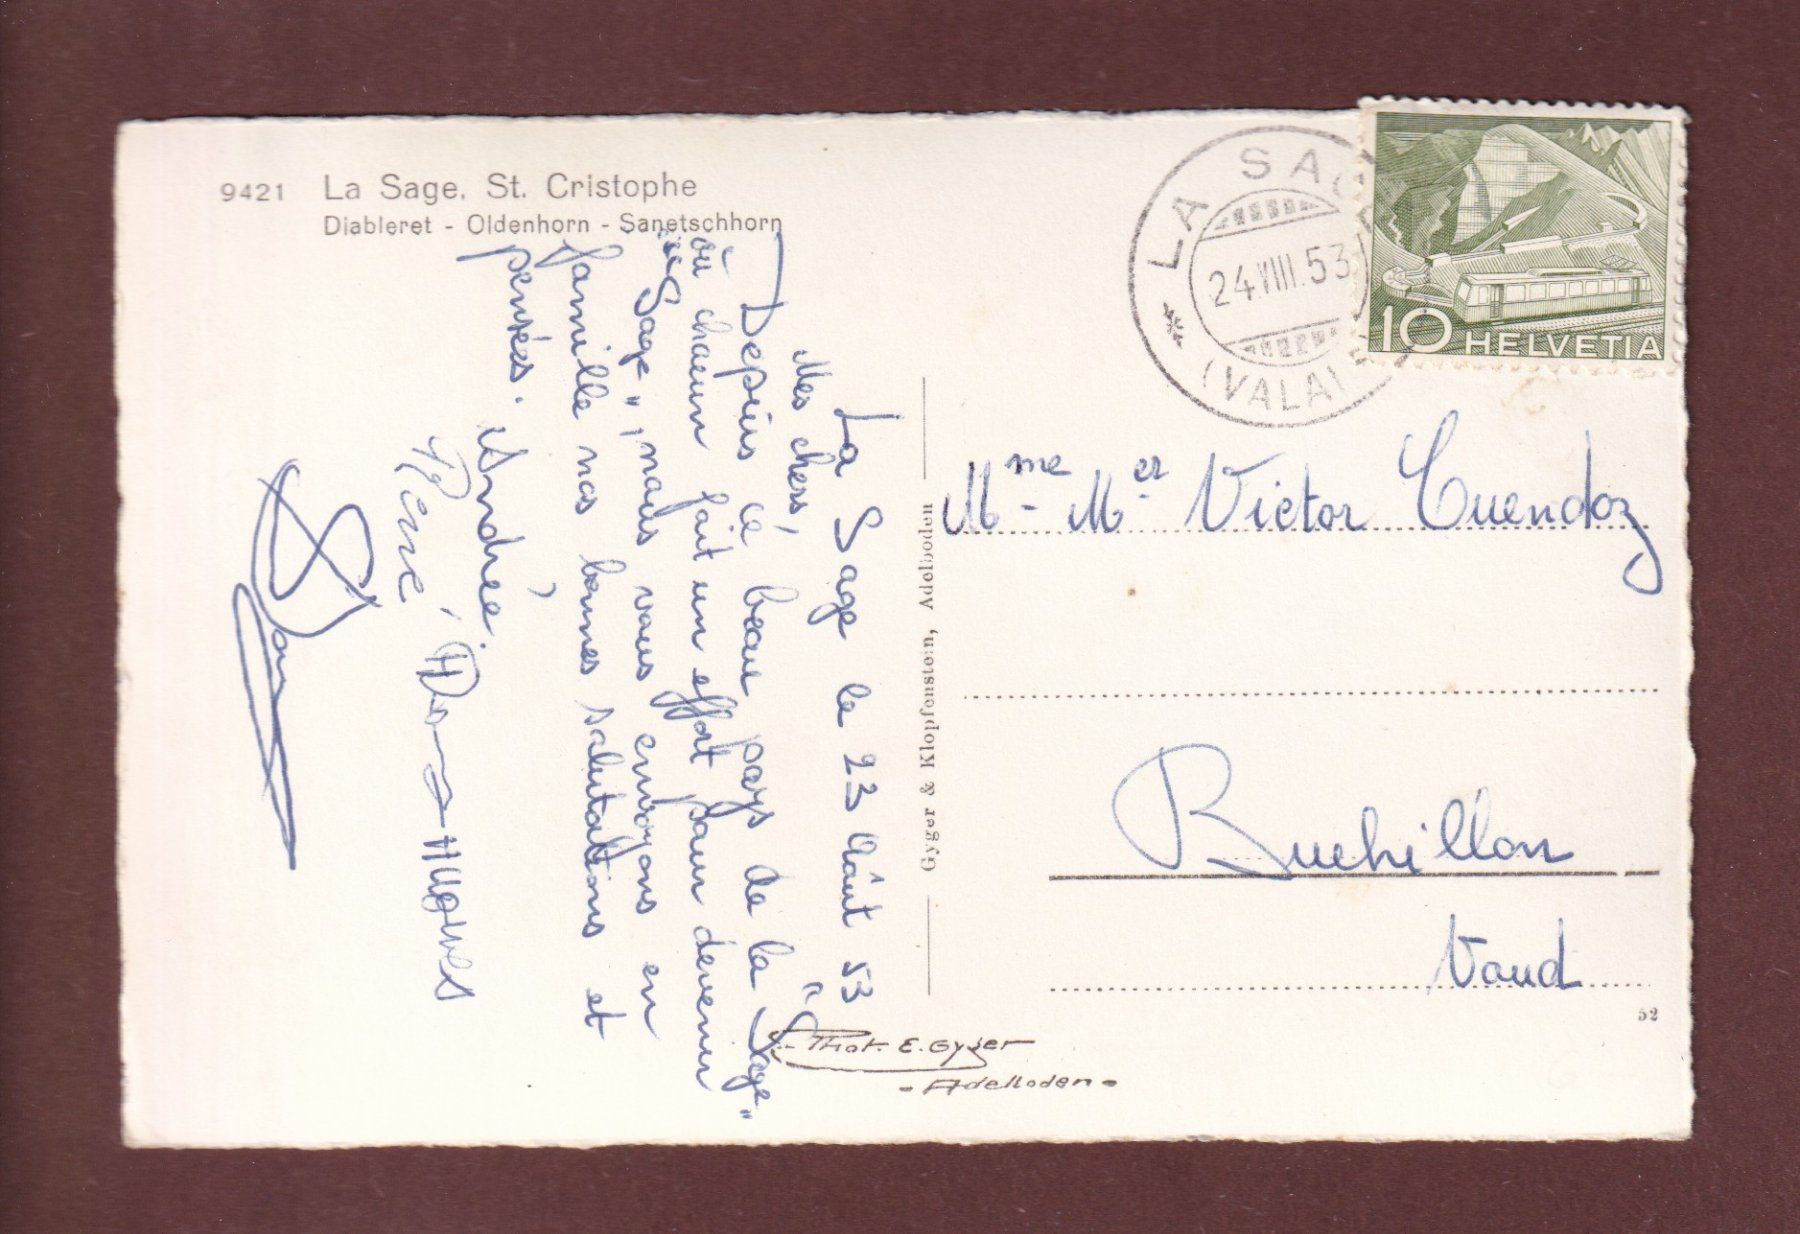 9421 La Sage. St. Cristophe
Diableret - Oldenhorn - Sanetschhorn
La Sage le 23 Août 53
Mes chers,
Depuis ce beau pays de la "Sage"
où chacun fait un effort pour devenir
"Sage", mais vous envoyons en
famille nos bonnes salutations et
pensées. Andrée.
René
HUGUES
Gyger & Klopfenstein, Adelboden
Phot. E. Gyger
- Adelboden -
LA SAGE
24.VIII.53
(VALAIS)
10 HELVETIA
Mme - Mr Victor Cuendoz
Buchillon
Vaud
52